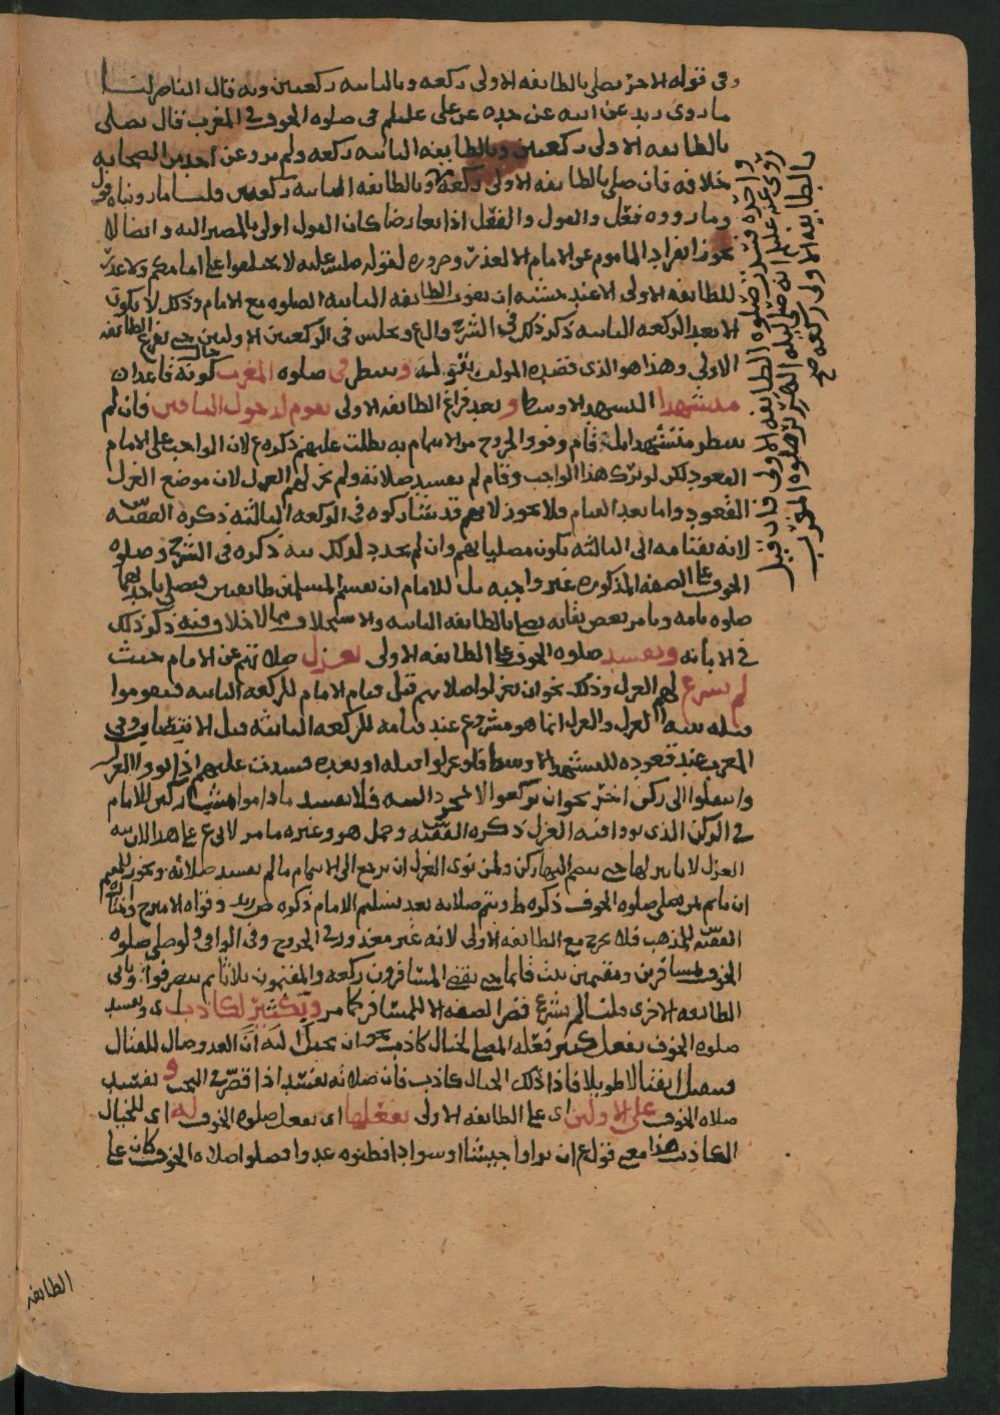 وفي قوله الاخر يصلي بالطايفه الاولى ركعه وبالثانيه ركعتين وبه قال الناصر لنا
ما روى زيد عن ابيه عن جده عن علي عليلم في صلوه الخوف في المغرب قال يصلي
بالطايفه الاولى ركعتين وبالطايفه الثانيه ركعه ولم يرو عن احد من الصحابه
خلافه فان صلى بالطايفه الاولى ركعه وبالطايفه الثانيه ركعتين قلنا ما رويناه قول
وما رووه فعل والقول والفعل اذا تعارضا كان القول اولى بالمصير اليه وايضا لا
يجوز انفراد الماموم عن الامام الا لعذر وضروره لقوله صلى عليه لا تختلفوا على امامكم ولا عذر
للطايفه الاولى الا عند خشيه ان يفوت الطايفه الثانيه الصلوه مع الامام وذلك لا يكون
الا بعد الركعه الثانيه ذكر ذلك في الشرح والع ويجلس في الركعتين الاولتين حتى تفرغ الطايفه
الاولى وهذا هو الذي قصده المولف بقوله وينتظر في صلوه المغرب حال كونه قاعدا ان
متشهدا التشهد الاوسط و بعد فراغ الطايفه الاولى يقوم لدخول الباقين فان لم
ينتظر متشهدا بل قام ونووا الخروج من الايتمام به بطلت عليهم ذكره ع لان الواجب على الامام
القعود لكن لو ترك هذا الواجب وقام لم تفسد صلاته ولم يجز لهم العزل لان موضع العزل
القعود واما بعد القيام فلا يجوز لانهم قد شاركوه في الركعه الثالثه ذكره الفقيه
لانه بقيامه الى الثالثه يكون مصليا بهم وان لم يجدد لذلك نيه ذكره في الشرح وصلوه
الخوف على الصفه المذكوره غير واجبه بل للامام ان يقسم المسلمين طايفتين فيصلي باحديهما
صلوه تامه ويامر بعض ثقاته يصلي بالطايفه الثانيه والاستخلاف فيها لا خلاف فيه ذكر ذلك
في الابانه وتفسد صلوه الخوف على الطايفه الاولى بعزل صلاتهم عن الامام حيث
لم يشرع لهم العزل وذلك نحو ان يعزلوا صلاتهم قبل قيام الامام للركعه الثانيه فيقوموا
قبله بنيه العزل والعزل انما هو مشروع عند قيامه للركعه الثانيه قبل الانتصاب وفي
المغرب عند قعوده للتشهد الاوسط فلو عزلوا قبله او بعده فسدت عليهم اذا نووا العزل
وانتقلوا الى ركن اخر نحو ان يركعوا لا بمجرد النيه فلا تفسد ما داموا مشاركين للامام
في الركن الذي نووا فيه العزل ذكره الفقيه وحمل هو وغيره ما مر لابي ع على هذا لان نيه
العزل لا تاثير لها حتى ينضم اليها ركن ولمن نوى العزل ان يرجع الى الايتمام ما لم تفسد صلاته ويجوز للمقيم
ان ياتم بمن يصلي صلوه الخوف ذكره ط ويتم صلاته بعد تسليم الامام ذكره ض زيد وقواه الامير ح واختار
الفقيه للمذهب قلا يخرج مع الطايفه الاولى لانه غير معذور في الخروج وفي الوافي ولو صلى صلوه
الخوف بمسافرين ومقيمين ثبت قايما حتى يقضي المسافرون ركعه والمقيمون ثلاثا ثم ينصرفوا وياتي
الطايفه الاخرى قلنا لم يشرع قصر الصفه الا للمسافر كما مر وبكثير لخيال كاذب اي وتفسد
صلوه الخوف بفعل كثير فعله المصلي لخيال كاذب نحو ان يخيل اليه ان العدو صال للقتال
فيفعل افعالا طويلا فاذا ذلك الخيال كاذب فان صلاته تفسد اذا قصر في البحث و تفسد
صلاه الخوف على الاولين اي على الطايفه الاولى بفعلها اي بفعل صلوه الخوف له اي للخيال
الكاذب هذا معنى قوله ع ان راوا جيشا او سوادا فظنوه عدوا فصلوا صلاه الخوف كان على
الطايفه
واحده قبل صلوه الطايفه الاولى فان قيل
روي عنه عليلم انه صلى ليله الهرير صلوه المغرب
بالطايفه الاولى ركعه صح